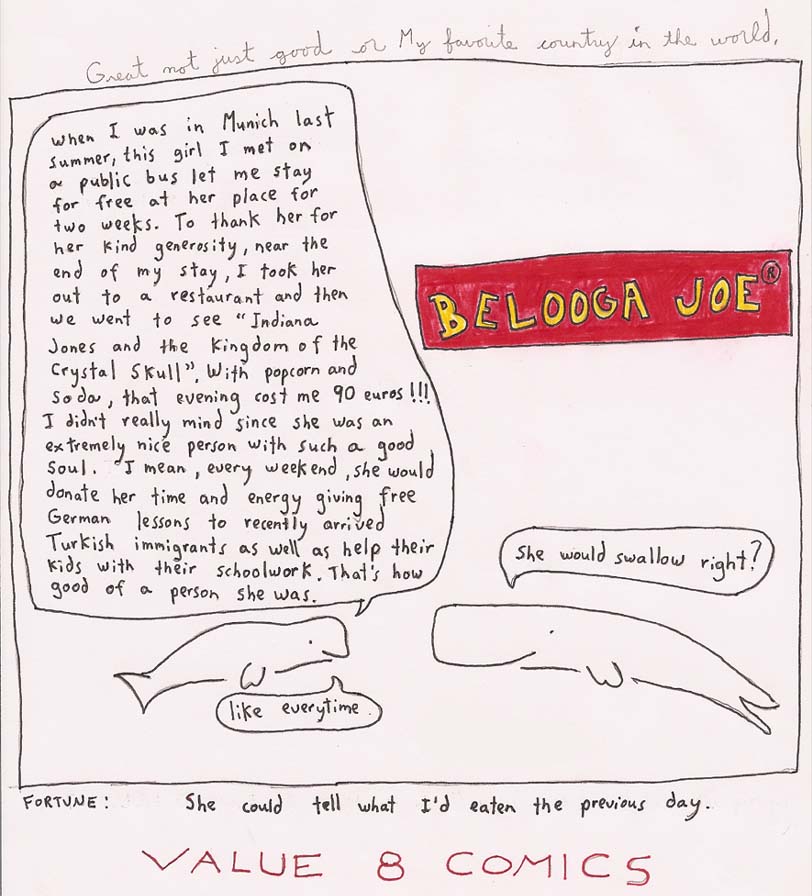 Great not just good or My favorite country in the world.
When I was in Munich last
summer, this girl I met on
a public bus let me stay
for free at her place for
two weeks. To thank her for
her kind generosity, near the
end of my stay, I took her
out to a restaurant and then
we went to see "Indiana
Jones and the Kingdom of the
Crystal Skull". With popcorn and
soda, that evening cost me 90 euros!!!
I didn't really mind since she was an
extremely nice person with such a good
soul. I mean, every weekend, she would
donate her time and energy giving free
German lessons to recently arrived
Turkish immigrants as well as help their
kids with their schoolwork. That's how
good of a person she was.
BELOOGA JOE®
She would swallow right?
like everytime.
FORTUNE: She could tell what I'd eaten the previous day.
VALUE 8 COMICS